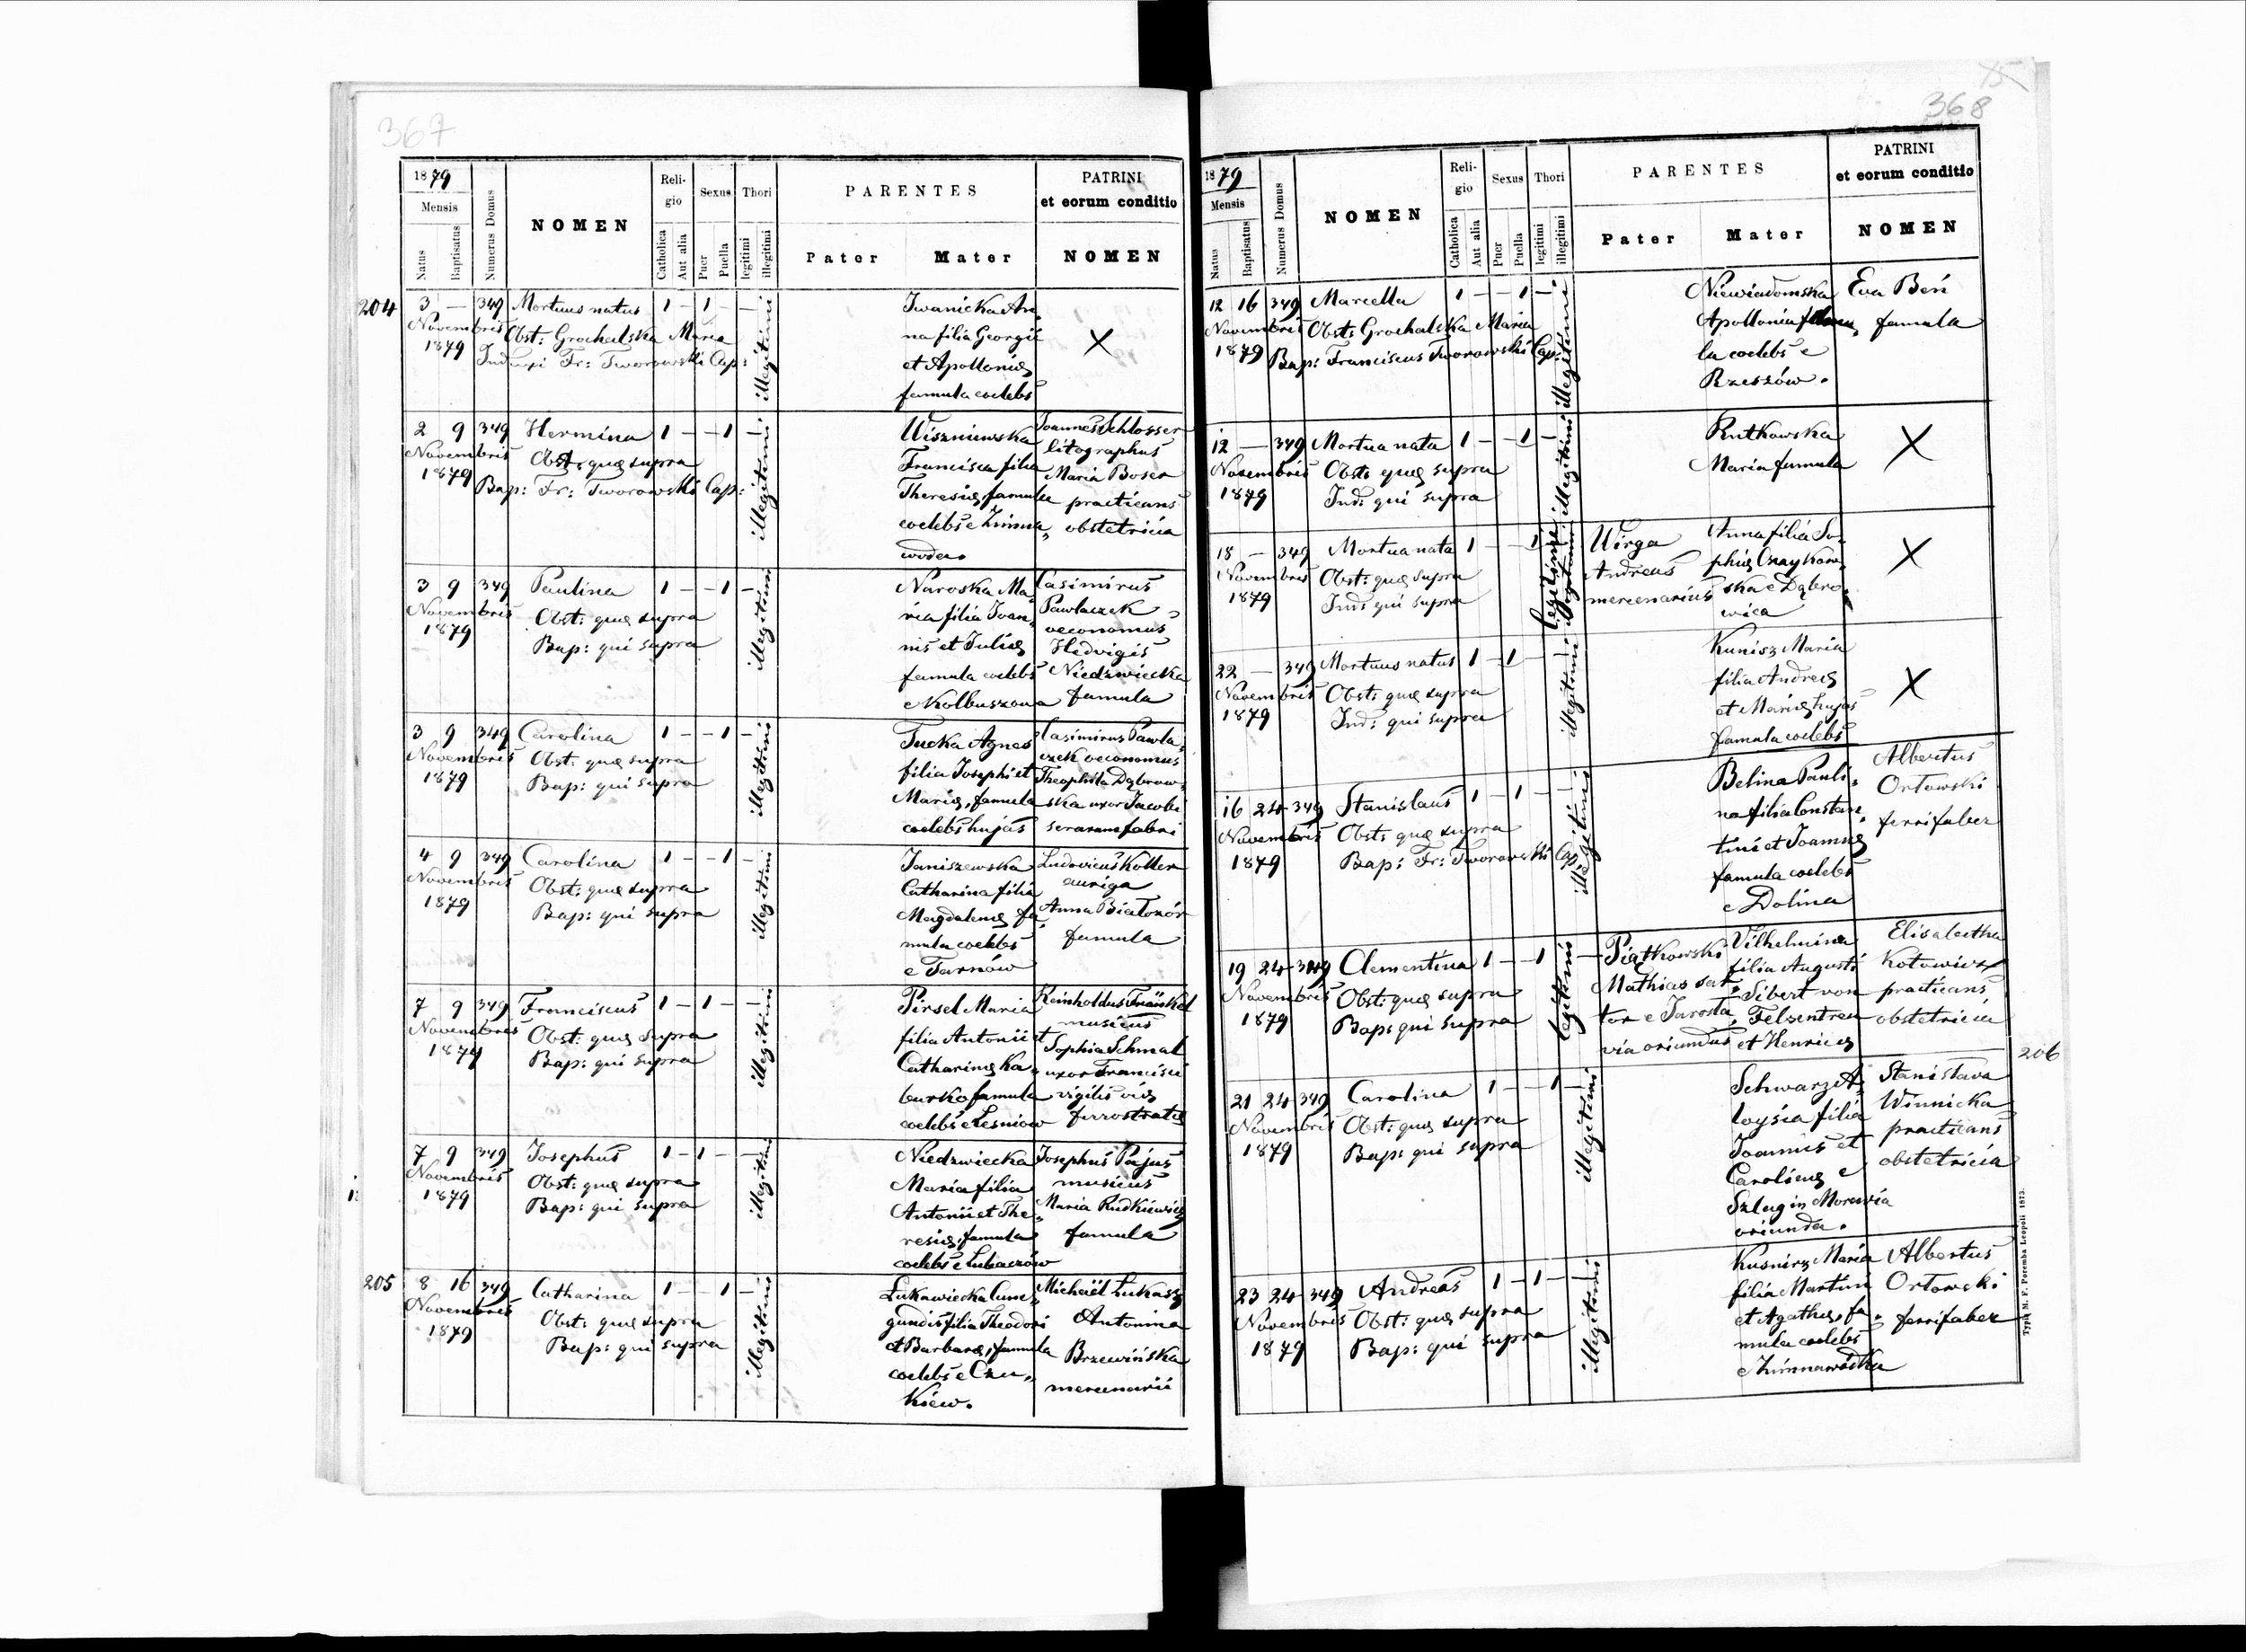 367
1879
Mensis
Natus
Baptisatus
Numerus Domus
NOMEN
Religio
Catholica
Aut alia
Sexus
Puer
Puella
Thori
legitimi
illegitimi
PARENTES
Pater
Mater
PATRINI
et eorum conditio
NOMEN
204
3 — 349 Mortuus natus 1 – 1 – –
Novembris
1879
Obst: Grochalska Maria
Fr: Tworowski Cap:
illegitimi
Iwanicka An,
na filia Georgii
et Apolloniæ
famula coelebs
X
2 9 349 Hermina 1 – – 1 –
Novembris
1879
Obst: quæ supra
Bap: Fr: Tworowski Cap:
illegitimi
Wiszniewska
Francisca filia
Theresiæ, famula
coelebs e Zimna„
woda.
Joannes Schlosser
litographus
Maria Boser
practicans
obstetricia
3 9 349 Paulina 1 – – 1 –
Novembris
1879
Obst: quæ supra
Bap: qui supra
illegitimi
Naroska Ma„
ria filia Joan„
nis et Juliæ
famula coelebs
e Kolbuszowa
Casimirus
Pawlaczek
oeconomus
Hedvigis
Niedzwiecka
famula
3 9 349 Carolina 1 – – 1 –
Novembris
1879
Obst: quæ supra
Bap: qui supra
illegitimi
Tucka Agnes
filia Josephi et
Mariæ, famula
coelebs hujas
Casimirus Pawla„
czek oeconomus
Theophila Dąbrow„
ska uxor Jacobi
serarum fabri
4 9 349 Carolina 1 – – 1 –
Novembris
1879
Obst: quæ supra
Bap: qui supra
illegitimi
Janiszewska
Catharina filia
Magdalenæ fa„
mula coelebs
e Tarnów
Ludovicus Koller
auriga
Anna Białonór
famula
7 9 349 Franciscus 1 – 1 – –
Novembris
1879
Obst: quæ supra
Bap: qui supra
illegitimi
Pirsel Maria
filia Antonii et
Catharinæ Ka„
burko famula
coelebs e Lesniow
Reinholdus Fränkel
musicus
Sophia Schmal
uxor Francisci
vigilis viæ
ferrostratæ
7 9 349 Josephus 1 – 1 – –
Novembris
1879
Obst: quæ supra
Bap: qui supra
illegitimi
Niedzwiecka
Maria filia
Antonii et The„
resiæ, famula
coelebs e Lubaczów
Josephus Pajus
musicus
Maria Rudkiewicz
famula
205
8 16 349 Catharina 1 – – 1 –
Novembris
1879
Obst: quæ supra
Bap: qui supra
illegitimi
Lukawiecka Cune„
gundis filia Theodori
et Barbaræ, famula
coelebs e Czu„
kiew.
Michaël Łukasz
Antonina
Brzewińska
mercenarii
368
1879
Mensis
Natus
Baptisatus
Numerus Domus
NOMEN
Religio
Catholica
Aut alia
Sexus
Puer
Puella
Thori
legitimi
illegitimi
PARENTES
Pater
Mater
PATRINI
et eorum conditio
NOMEN
12 16 349 Marcella 1 – – 1 –
Novembris
1879
Obst: Grochalska Maria
Bap: Franciscus Tworowski Cap:
illegitimi
Niewiadomska
Apollonia famu„
la coelebs e
Rzeszów.
Eva Beń
famula
12 — 349 Mortua nata 1 – – 1 –
Novembris
1879
Obst: quæ supra
Ind: qui supra
illegitimi
Rutkowska
Maria famula
X
18 – 349 Mortua nata 1 – – 1
Novembris
1879
Obst: quæ supra
Ind: qui supra
legitimi
Wirga
Andreas
mercenarius
Anna filia So„
phiæ Czaykow„
ska e Dąbro„
wica
X
22 — 349 Mortuus natus 1 – 1 – –
Novembris
1879
Obst: quæ supra
Ind: qui supra
illegitimi
Kunisz Maria
filia Andreæ
et Mariæ hujas
famula coelebs
X
16 24 349 Stanislaus 1 – 1 – –
Novembris
1879
Obst: quæ supra
Bap: Fr: Tworowski Cap.
illegitimi
Belina Pauli„
na filia Constan„
tini et Joannæ
famula coelebs
e Dolina
Albertus
Orłowski
ferrifaber
19 24 349 Clementina 1 – – 1 –
Novembris
1879
Obst: quæ supra
Bap: qui supra
legitimi
Piątkowski
Mathias sar„
tor e Jarosła„
via oriundus
Vilhelmina
filia Augusti
Sibert von
Felzentreu
et Henricæ
Elisabetha
Kotowicz
practicans
obstetricia
206
21 24 349 Carolina 1 – – 1 –
Novembris
1879
Obst: quæ supra
Bap: qui supra
illegitimi
Schwarz A„
loysia filia
Joannis et
Carolinæ e
Szlug in Moravia
oriunda.
Stanislava
Winnicka
practicans
obstetricia
23 24 349 Andreas 1 – 1 – –
Novembris
1879
Obst: quæ supra
Bap: qui supra
illegitimi
Kusnirz Maria
filia Martini
et Agathæ, fa„
mula coelebs
e Zimnawódka
Albertus
Orłowski
ferrifaber
Typis M. F. Poremba Leopoli 1873.